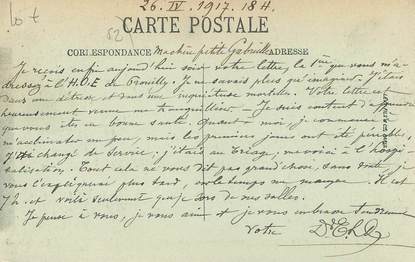 26. IV. 1917. 18 H.
CARTE POSTALE
CORRESPONDANCE Ma chère petite Gabrielle ADRESSE
Je reçois enfin aujourd'hui soir votre lettre, la 1ère que vous m'a-
dressez à l'H.O.E. de Prouilly. Je ne savais plus qu'imaginer. J'étais
dans une détresse et dans une inquiétude mortelles. Votre lettre est
heureusement venue me tranquilliser. Je suis content d'apprendre
que vous êtes en bonne santé. Quant à moi, je commence à
m'acclimater un peu, mais les premiers jours ont été pénibles.
J'ai changé de service ; j'étais au Triage, me voici à l'hospi-
talisation. Tout cela ne vous dit pas grand'chose, sans doute, je
vous l'expliquerai plus tard, car le temps me manque. Il est
7 h. et voilà seulement que je sors de mes salles.
Je pense à vous, je vous aime et je vous embrasse tendrement
Votre